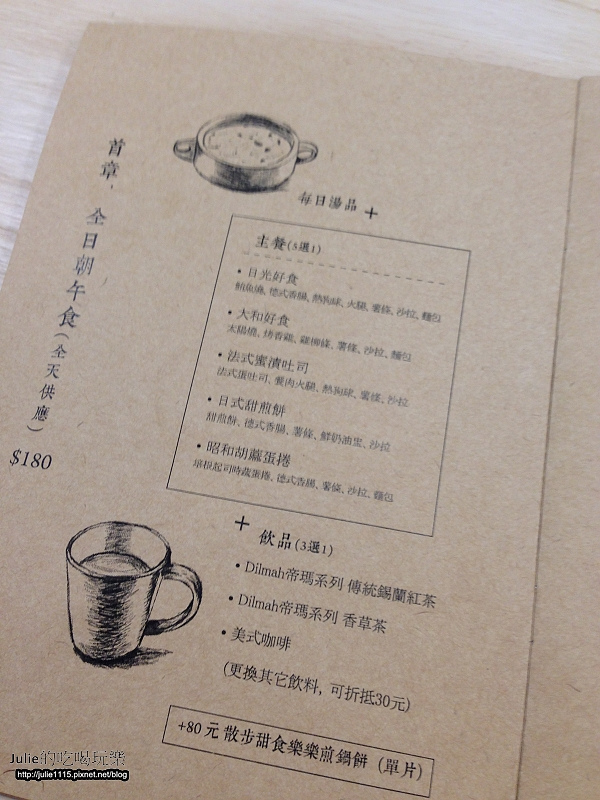 首章，全日朝午食(全天供應)
$180
每日湯品 +
主餐(5選1)
• 日光好食
鮪魚燒、德式香腸、熱狗球、火腿、薯條、沙拉、麵包
• 大和好食
太陽燒、烤香雞、雞柳條、薯條、沙拉、麵包
• 法式蜜漬吐司
法式蛋吐司、餐肉火腿、熱狗球、薯條、沙拉
• 日式甜煎餅
甜煎餅、德式香腸、薯條、鮮奶油盅、沙拉
• 昭和胡蘿蛋捲
培根起司時蔬蛋捲、德式香腸、薯條、沙拉、麵包
+ 飲品(3選1)
• Dilmah帝瑪系列 傳統錫蘭紅茶
• Dilmah帝瑪系列 香草茶
• 美式咖啡
(更換其它飲料, 可折抵30元)
+80 元 散步甜食樂樂煎鍋餅 (單片)
Julie的吃喝玩樂
http://julie1115.pixnet.net/blog